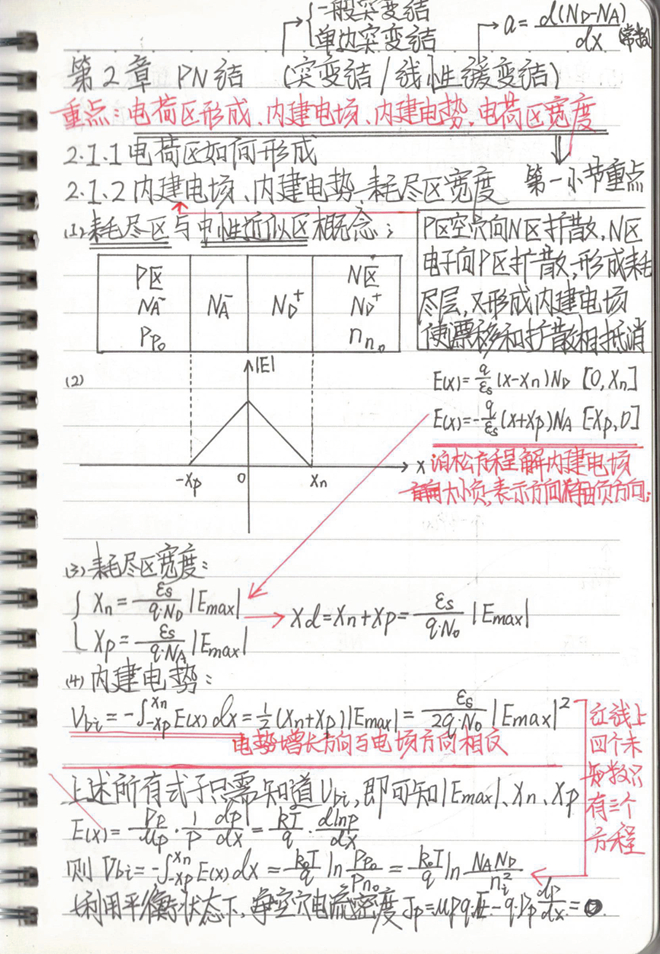 一般突变结
单边突变结
a = d(ND-NA)/dx (常数)
第2章 PN结 (突变结/线性缓变结)
重点：电荷区形成、内建电场、内建电势、电荷区宽度
2.1.1 电荷区如何形成
2.1.2 内建电场、内建电势、耗尽区宽度
第一小节重点
(1) 耗尽区与中性近似区概念：
P区空穴向N区扩散，N区
电子向P区扩散，形成耗
尽层，又形成内建电场
使漂移和扩散相抵消
P区 N区
NA⁻ NA⁻ ND⁺ ND⁺
Pp₀ nn₀
(2)
|E|
-xp 0 xn x
E(x) = q/εs (x-xn)ND [0, xn]
E(x) = -q/εs (x+xp)NA [-xp, 0]
泊松方程解内建电场
大小负，表示方向
(3) 耗尽区宽度：
xn = εs/(q·ND) |Emax|
xp = εs/(q·NA) |Emax|
xd = xn + xp = εs/(q·N₀) |Emax|
(4) 内建电势：
Vbi = -∫_{-xp}^{xn} E(x)dx = 1/2 (xn+xp)|Emax| = εs/(2q·N₀) |Emax|²
电势增长方向与电场方向相反
红线上
四个未
知数只
有三个
方程
上述所有式子只需知道Vbi，即可知|Emax|、xn、xp
E(x) = Dp/μp · 1/p · dp/dx = k₀T/q · dlnp/dx
则 Vbi = -∫_{-xp}^{xn} E(x)dx = k₀T/q ln Pp₀/Pn₀ = k₀T/q ln NAND/ni²
利用平衡状态下，净空穴电流密度 Jp = μpqpE - qDp dp/dx = 0